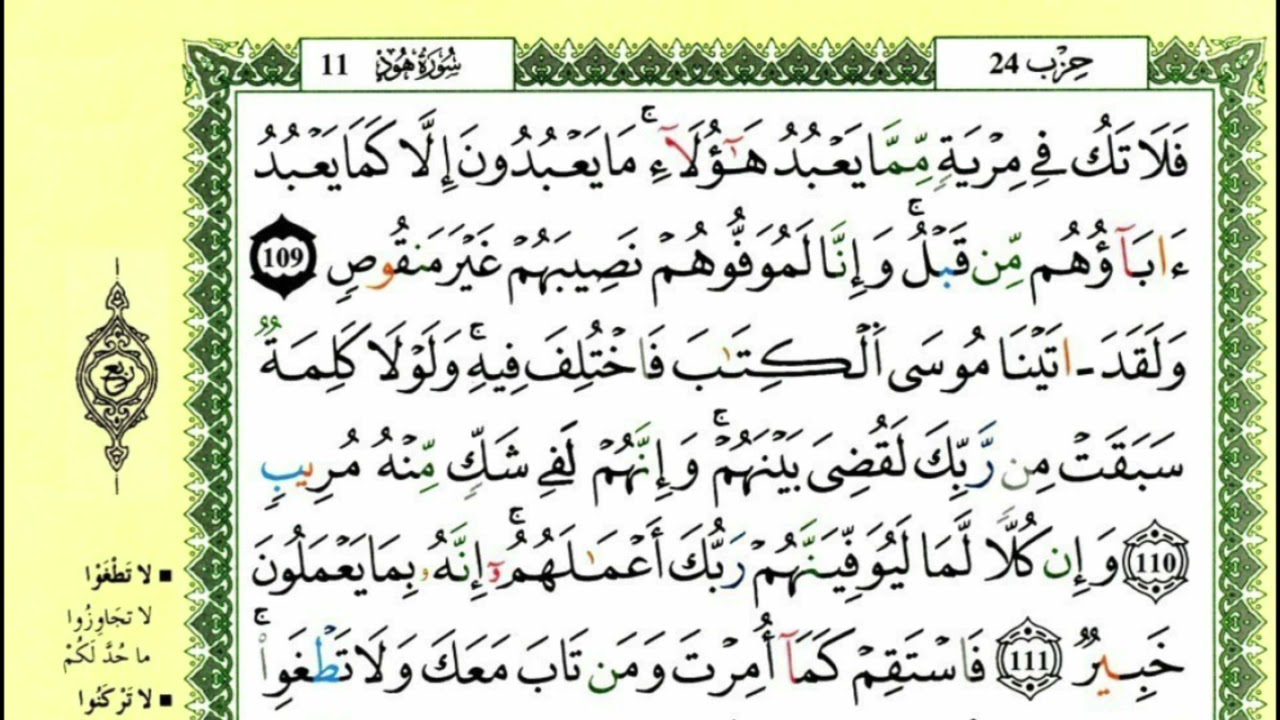 حِزْب 24
سُورَةُ هُود 11
فَلَا تَكُ فِي مِرْيَةٍ مِّمَّا يَعْبُدُ هَٰٓؤُلَآءِۚ مَا يَعْبُدُونَ إِلَّا كَمَا يَعْبُدُ
ءَابَآؤُهُم مِّن قَبْلُۚ وَإِنَّا لَمُوَفُّوهُمْ نَصِيبَهُمْ غَيْرَ مَنقُوصٍ 109
وَلَقَدَ ـ اتَيْنَا مُوسَى اَ۬لْكِتَٰبَ فَاخْتُلِفَ فِيهِۚ وَلَوْلَا كَلِمَةٌ
سَبَقَتْ مِن رَّبِّكَ لَقُضِيَ بَيْنَهُمْۚ وَإِنَّهُمْ لَفِي شَكٍّ مِّنْهُ مُرِيبٍ
110 وَإِن كُلًّا لَّمَا لَيُوَفِّيَنَّهُمْ رَبُّكَ أَعْمَٰلَهُمُۥٓۚ إِنَّهُۥ بِمَا يَعْمَلُونَ
خَبِيرٌ 111 فَاسْتَقِمْ كَمَآ أُمِرْتَ وَمَن تَابَ مَعَكَ وَلَا تَطْغَوِاْۚ
ربع
■ لا تَطْغَوْا
لا تجَاوِزُوا
ما حُدَّ لَكُمْ
■ لا تَرْكَنُوا